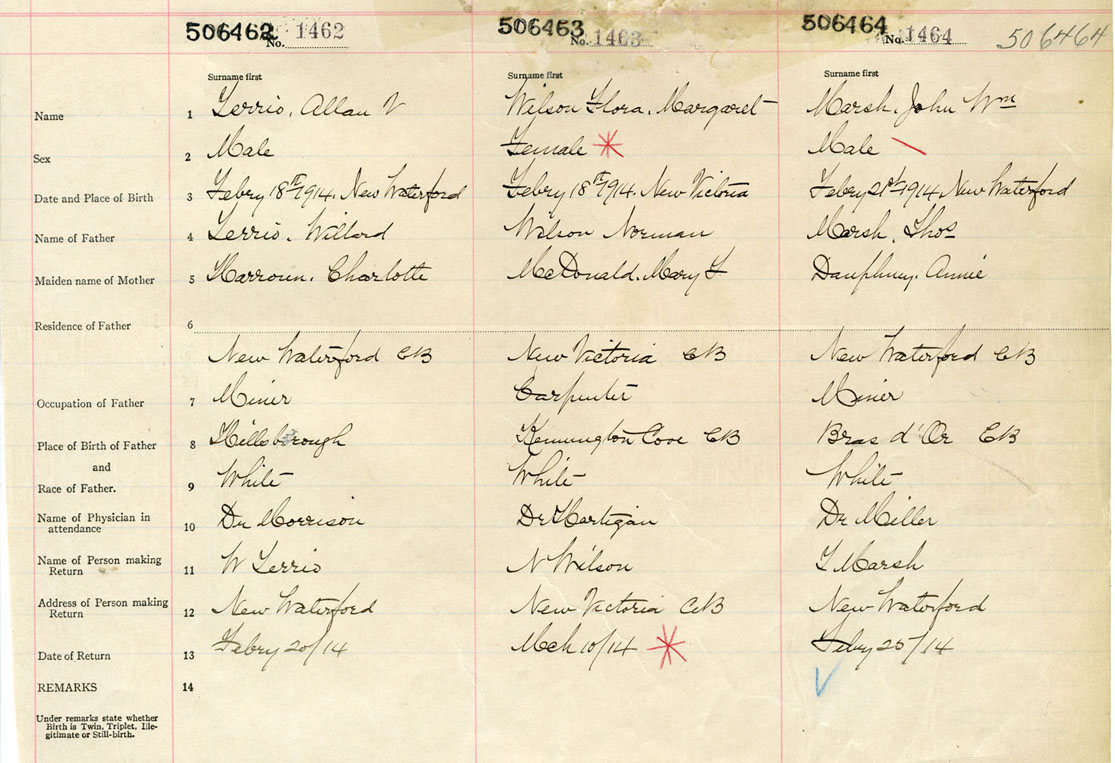 506462 No. 1462 506463 No. 1463 506464 No. 1464 506464
Surname first Surname first Surname first
Name 1 Allan V Wilson Flora, Margaret Marsh, John Wm
Sex 2 Male Female Male
Date and Place of Birth 3 Febry 18th 1914, New Waterford Febry 18th 1914, New Victoria Febry 21st 1914, New Waterford
Name of Father 4 Willard Wilson Norman Marsh, Thos
Maiden name of Mother 5 Charlotte McDonald, Mary F Annie
Residence of Father 6
New Waterford CB New Victoria CB New Waterford CB
Occupation of Father 7 Miner Carpenter Miner
Place of Birth of Father 8 Hillsborough Kennington Cove CB Bras d'Or CB
and
Race of Father. 9 White White White
Name of Physician in attendance 10 Dr Morrison Dr Hartigan Dr Miller
Name of Person making Return 11 W N Wilson T Marsh
Address of Person making Return 12 New Waterford New Victoria CB New Waterford
Date of Return 13 Febry 20/14 Mch 10/14 Febry 25/14
REMARKS 14
Under remarks state whether
Birth is Twin, Triplet, Ille-
gitimate or Still-birth.